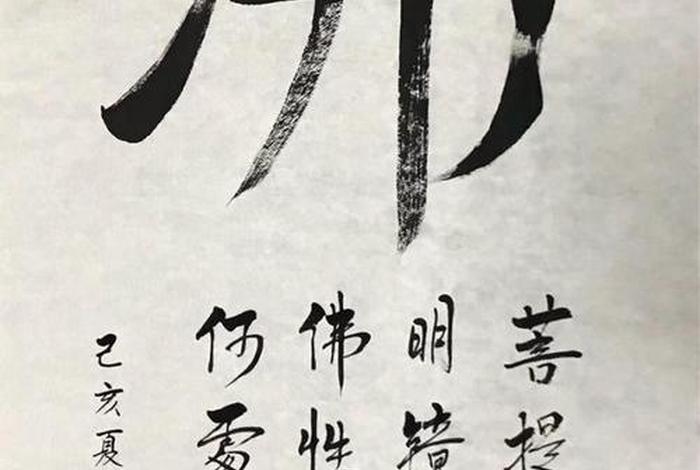 菩提
明鏡
佛性
何處
己亥夏